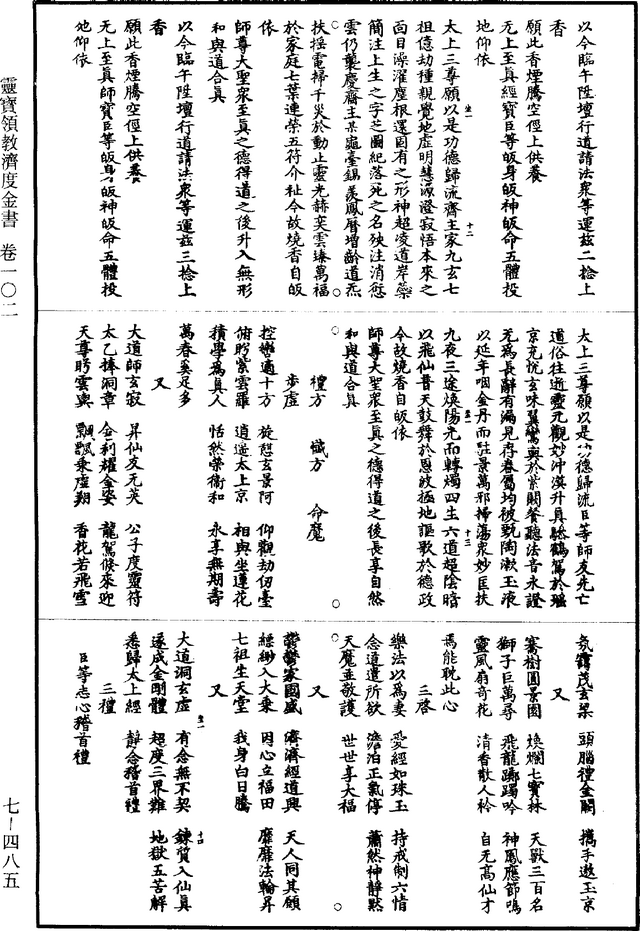 以今臨午陞壇行道請法衆等運茲二捻上
香
願此香煙騰空徑上供養
无上至真經寶臣等皈身皈神皈命五體投
地仰依
太上三尊願以是功德歸流齊主家九玄七
祖億劫種親覺地虛明慧源澄寂悟本來之
面目滌濯塵根還固有之形神超凌道岸蘂
簡注上生之字芝圖紀落死之名殃注消愆
雲仍襲慶齋主某龜臺錫羨鳳曆增齡道炁
扶搖電掃千災於動止靈光赫奕雲臻萬福
於家庭七葉連榮五符介祉今故燒香自皈
依
師尊大聖衆至真之德得道之後升入無形
和與道合真
以今臨午陞壇行道請法衆等運茲三捻上
香
願此香煙騰空徑上供養
无上至真師寶臣等皈身皈神皈命五體投
地仰依
太上三尊願以是功德歸流臣等師友先亡
道俗往逝靈元觀妙沖漠升真驂鶴駕於瑤
京充悅玄味翼鸞輿於紫闕餐聽法音永證
无爲長辭有漏見存眷屬均被甄陶漱玉液
以延年咽金丹而駐景萬邪掃蕩衆妙匡扶
九夜三途煥陽光而轉燭四生六道超陰暗
以飛仙普天鼓舞於恩波極地謳歌於德政
今故燒香自皈依
師尊大聖衆至真之德得道之後長享自然
和與道合真
禮方 懺方 命魔
步虛
控轡適十方 旋憩玄景阿 仰觀劫仞臺
俯眄紫雲羅 逍遙太上京 相與坐蓮花
積學爲真人 恬然榮衛和 永享無期壽
萬春奚足多
又
大道師玄寂 昇仙友无英 公子度靈符
太乙捧洞章 金利耀金姿 龍駕倏來迎
天尊眄雲輿 飄飄乘虛翔 香花若飛雪
氛靄茂玄梁 頭腦禮金闕 攜手遨玉京
又
騫樹圓景園 煥爛七寶林 天獸三百名
獅子巨萬尋 飛龍躑躅吟 神鳳應節鳴
靈風扇奇花 清香散人衿 自无高仙才
焉能耽此心
三啓
樂法以爲妻 愛經如珠玉 持戒制六情
念道遣所欲 澹泊正氣停 蕭然神靜默
天魔並敬護 世世享大福
又
鬱鬱家國盛 濟濟經道興 天人同其願
縹緲入大乘 因心立福田 靡靡法輪昇
七祖生天堂 我身白日騰
又
大道洞玄虛 有念無不契 鍊質入仙真
遂成金剛體 超度三界難 地獄五苦解
悉歸太上經 靜念稽首禮
三禮
臣等志心稽首禮
靈寶領教濟度金書 卷一〇二
七—四八五